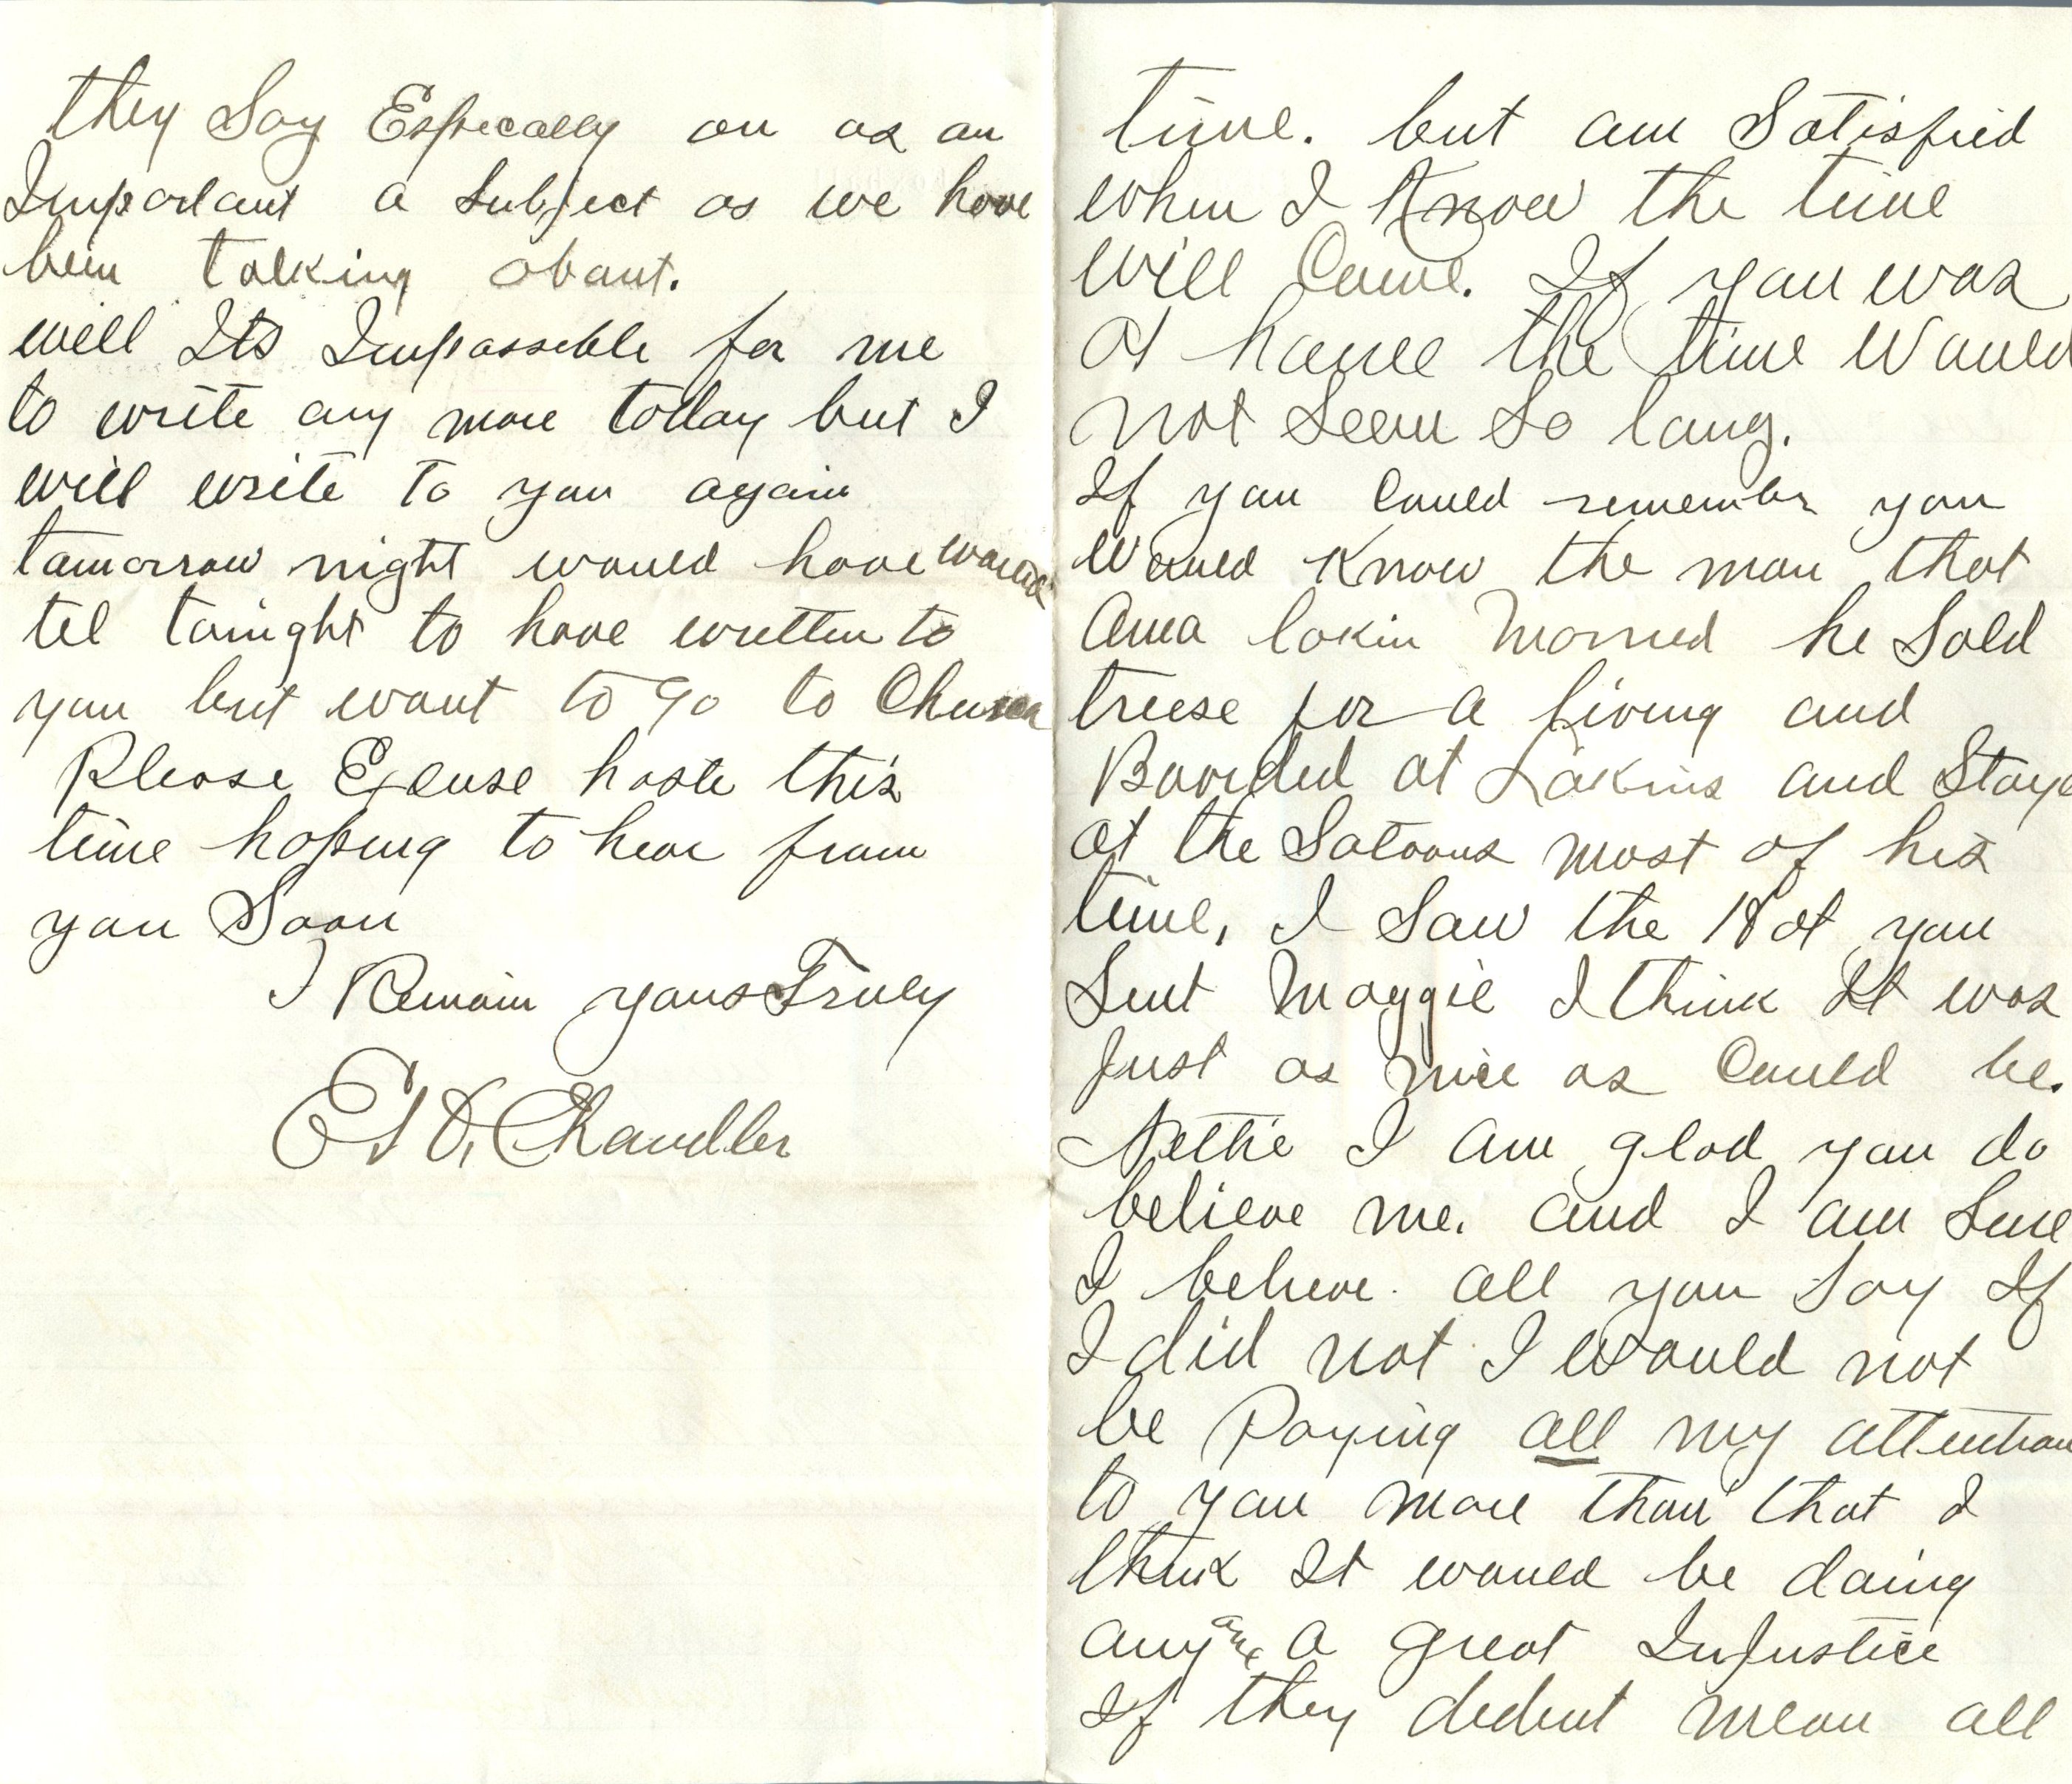 they Say Especally on as an
Important a Subject as we have
been talking about.
well Its Impossible for me
to write any more today but I
will write to you again
tomorrow night would have waited
tel tonight to have written to
you but want to go to Church
Please Excuse haste this
time hoping to hear from
you Soon
I Remain yours Truly
Ed D. Chandler
time. but am Satisfied
when I Know the time
will Come. If you was
at home the time Would
not Seem So long.
If you Could remember you
Would Know the man that
Anna lakin Married he Sold
treese for a living and
Boorded at Lakins and Stayed
at the Saloons most of his
time, I Saw the Hat you
Sent Maggie I think It was
Just as nice as Could be.
Nettie I am glad you do
believe me. and I am Sure
I believe all you Say If
I did not I would not
be Paying all my attention
to you more than that I
think It would be doing
any one a great InJustice
If they dident mean all